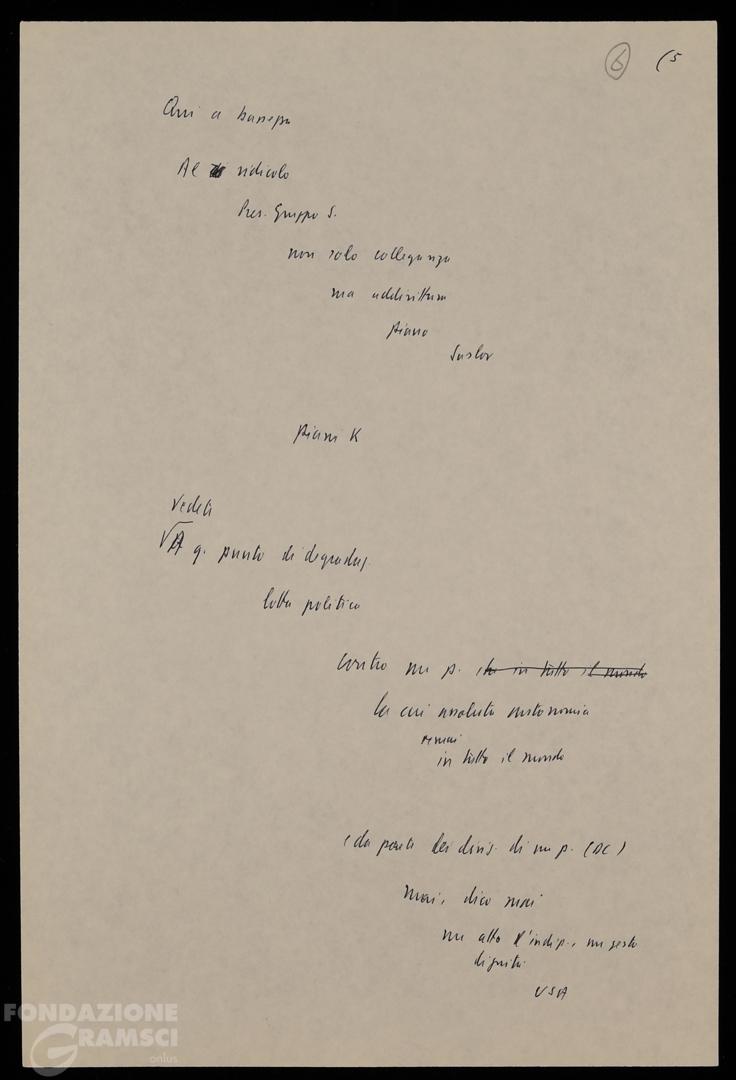 6 (5
Qui a bassezza
Al ridicolo
Pres. Gruppo S.
non solo colleganza
ma addirittura
piano
Suslov
piani K
Vedete
A q. punto di degradaz.
lotta politica
contro un p. che in tutto il mondo
la cui assoluta autonomia
ormai
in tutto il mondo
(da parte dei dirig. di un p. (DC)
mai, dico mai
un atto d'indip., un gesto
dignità
USA
FONDAZIONE
GRAMSCI
onlus